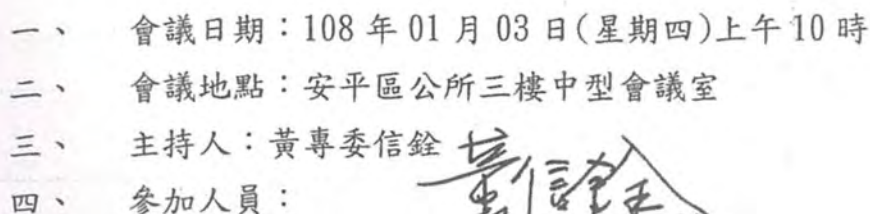 一、 會議日期：108 年 01 月 03 日(星期四)上午 10 時
二、 會議地點：安平區公所三樓中型會議室
三、 主持人：黃專委信銓 黃信銓
四、 參加人員：